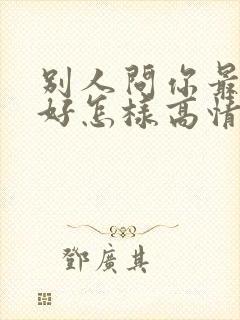 別人問你最
好怎樣高情
鄧廣其